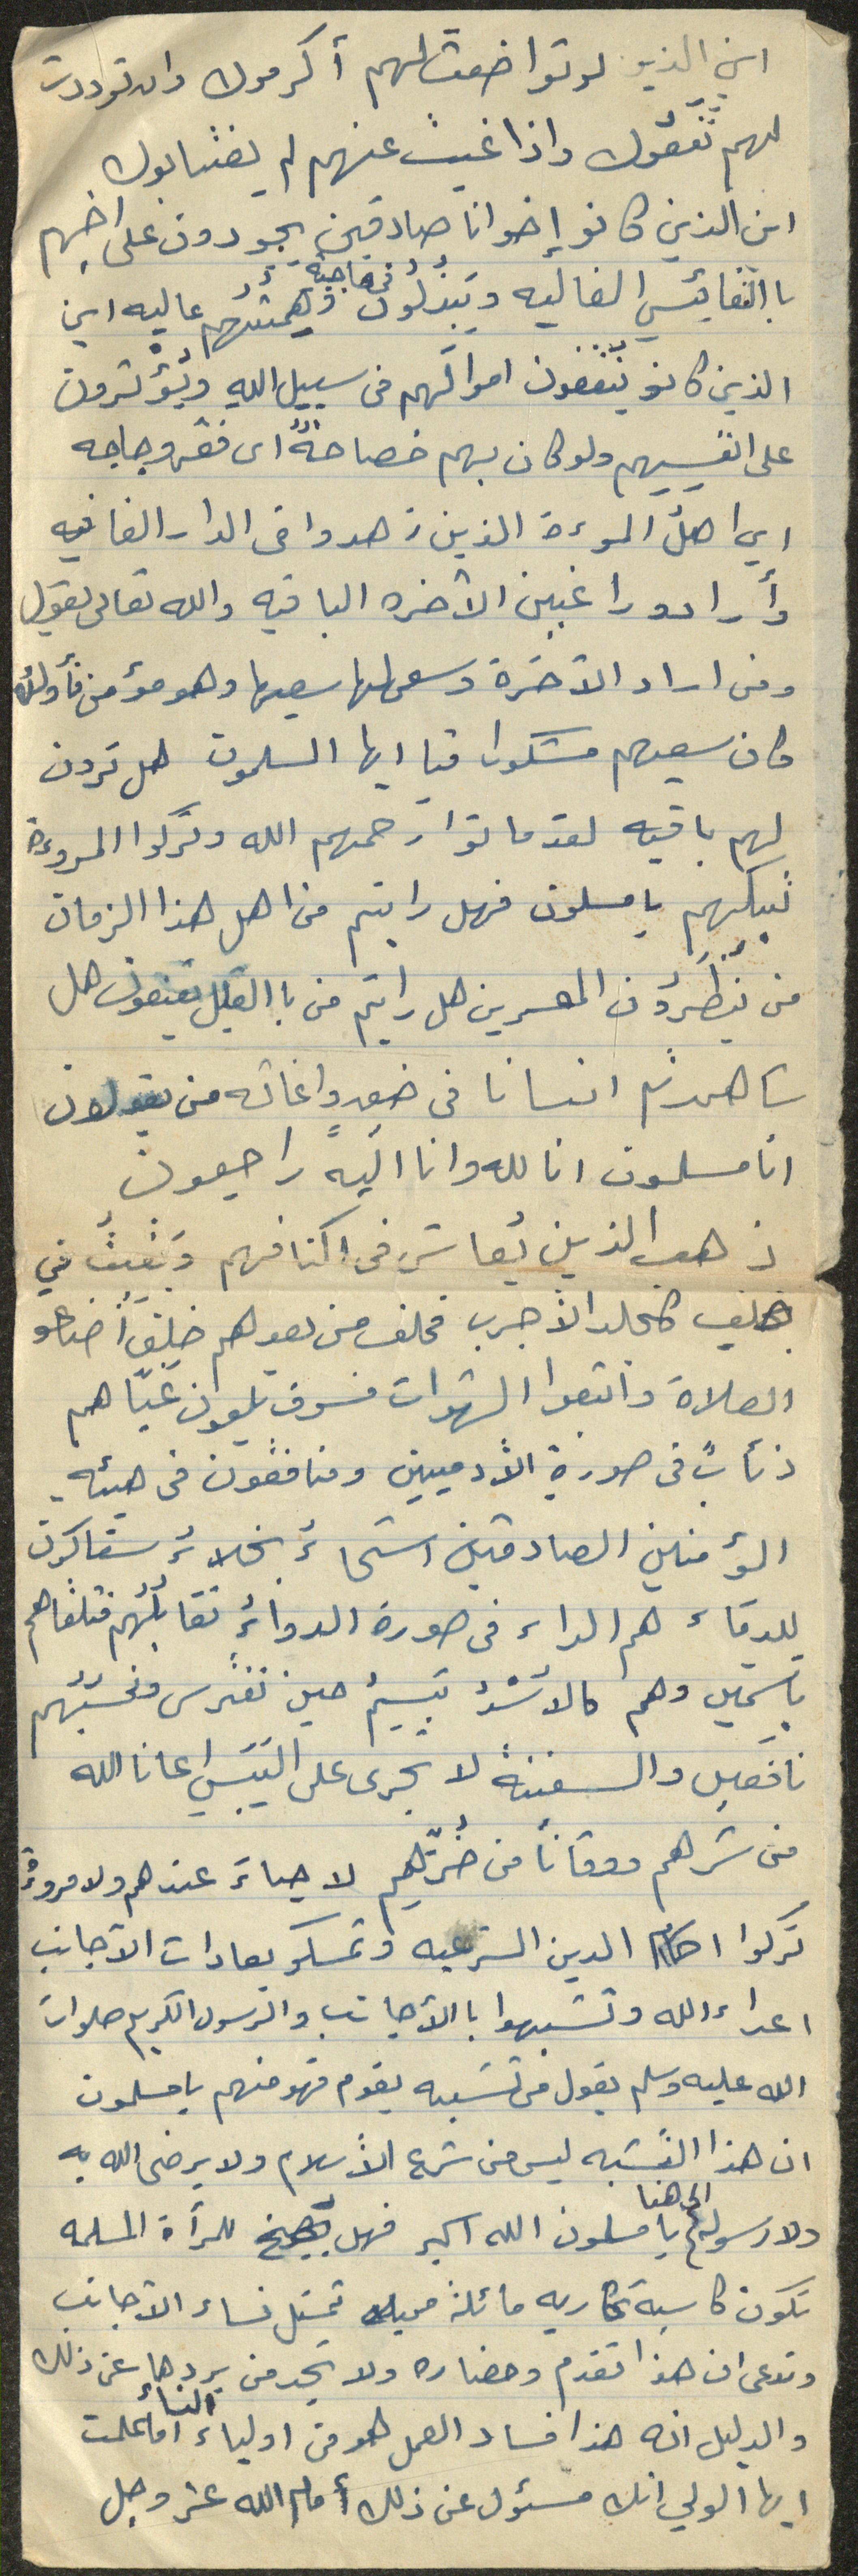 اين الذين لو تواضعت لهم أكرموك وان توددت
لهم نفعوك واذا غبت عنهم لم يغتابوك
اين الذين كانو إخوانا صادقين يجودون على اخيهم
باالنفائس الغاليه ويبذلون في حاجته وهمتهم عاليه اين
الذين كانو ينفقون اموالهم في سبيل الله ويؤثرون
على انفسهم ولو كان بهم خصاصةٌ اى فقر وحاجه
اين اهل المروءة الذين زهدوا في الدار الفانيه
وأرادو راغبين الآخره الباقيه والله تعالى يقول
ومن اراد الآخرة وسعى لها سعيها وهو مؤمن فأولئك
كان سعيهم مشكورا فيا ايها المسلمون هل ترون
لهم باقيه لقد ماتوا رحمهم الله وتركوا المروءة
تبكيهم يا مسلمون فهل رايتم من اهل هذا الزمان
من ينظرون المعسرين هل رايتم من باالقليل يقنعون هل
شاهدتم انسانا في ضيق واغاثه من يقولون
انا مسلمون انا لله وانا اليه راجعون
ذهب الذين يعاش في اكنافهم وبقيت في
خلف كجلد الأجرب فخلف من بعدهم خلف أضاعو
الصلاة واتبعوا الشهوات فسوف يلقون غيّا هم
ذئابٌ في صورة الآدميين ومنافقون في هيئه
المؤمنين الصادقين اشحاءُ بخلاءُ سفاكون
للدماء هم الداء في صورة الدواءِ تقابلهم فتلقاهم
باسمين وهم كالأسد يبسم حين تفترس وتحسبهم
نافعين والسفينة لا تجرى على اليبس اعانا الله
من شرهم ووقانا من ضرّهم لا حياءَ عندهم ولا مروءة
تركوا احكام الدين الشرعيه وتمسكو بعادات الآجانب
اعداء الله وتشبهوا باالأجانب والرسول الكريم صلوات
الله عليه وسلم يقول من تشبه بقوم فهو منهم يا مسلمون
ان هذا التشبه ليس من شرع الأسلام ولا يرضى الله به
ولا رسوله الى هنا يا مسلمون الله اكبر فهل يصح للمرأة المسلمه
تكون كاسية عاريه مائلة مميله تمثل نساء الآجانب
وتدعى ان هذا تقدم وحضاره ولا تجد من يردها عن ذلك
والدليل انه هذا فساد العمل هو من اولياء النساءُ اما علمت
ايها الولي انك مسئول عن ذلك أمام الله عز وجل